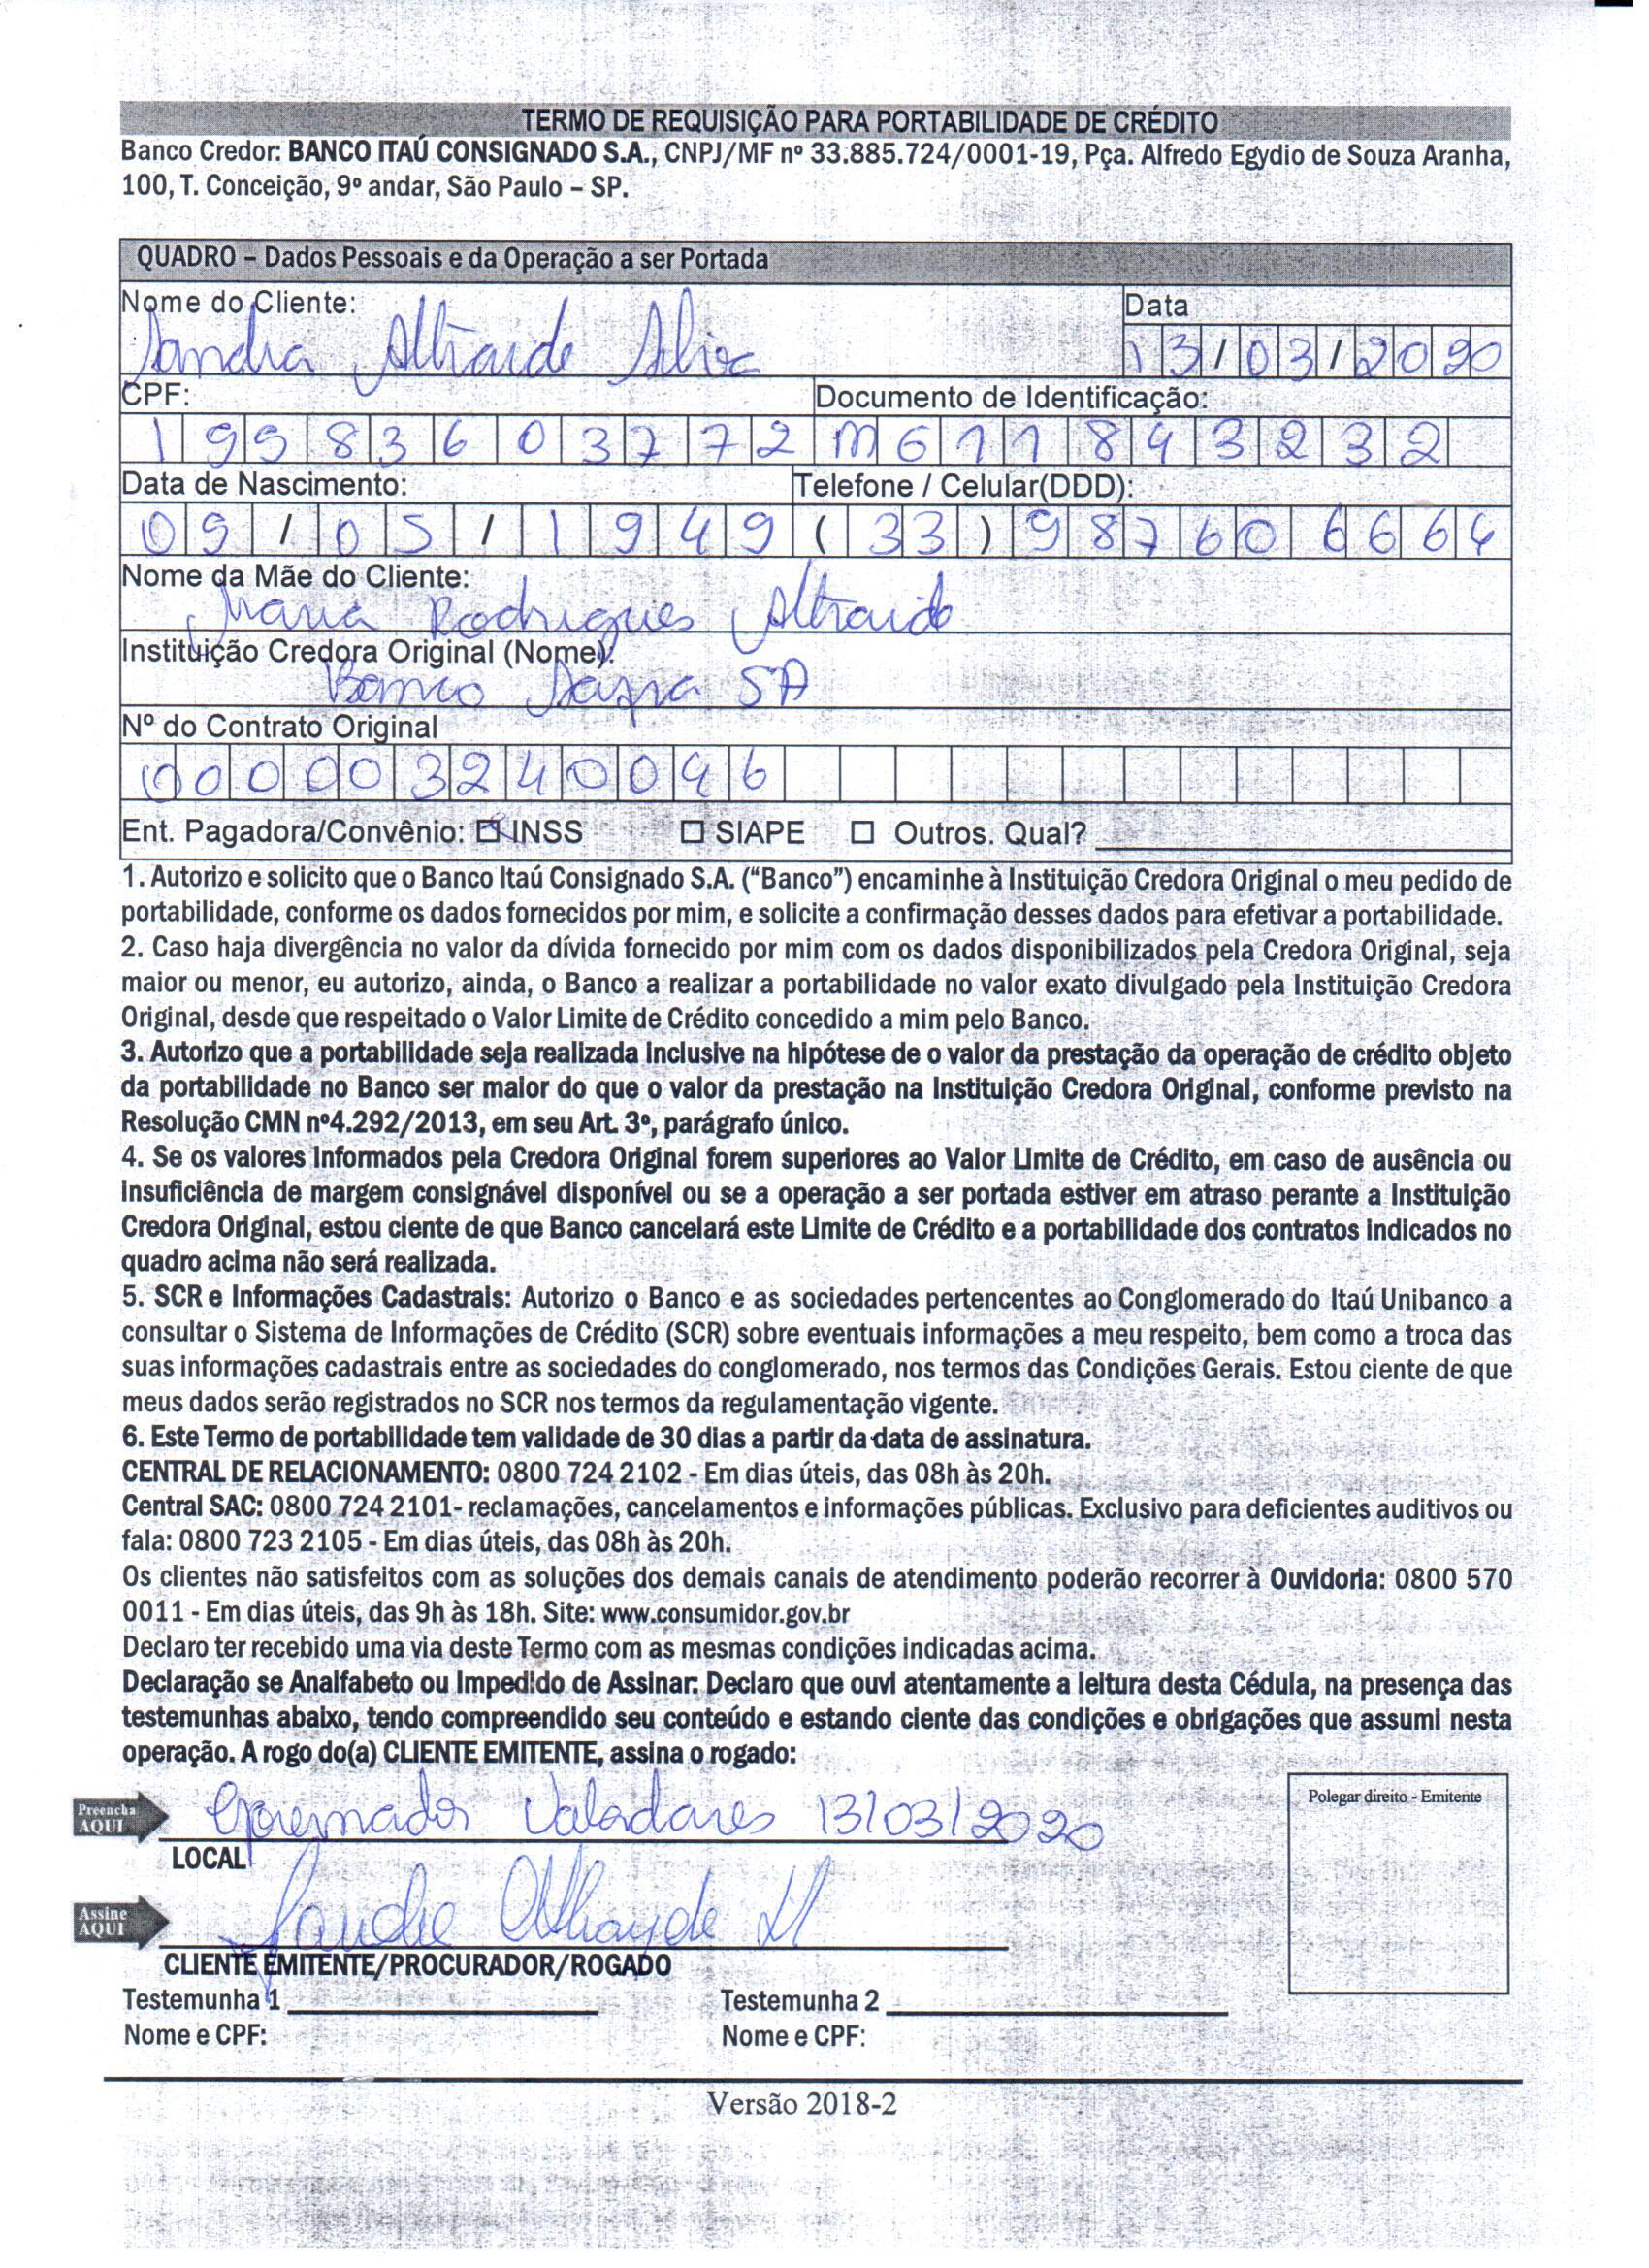 TERMO DE REQUISIÇÃO PARA PORTABILIDADE DE CRÉDITO
Banco Credor: BANCO ITAÚ CONSIGNADO S.A., CNPJ/MF nº 33.885.724/0001-19, Pça. Alfredo Egydio de Souza Aranha,
100, T. Conceição, 9º andar, São Paulo – SP.
QUADRO – Dados Pessoais e da Operação a ser Portada
Nome do Cliente: Data
Sandra 13/03/2020
CPF: Documento de Identificação:
19983603772 M611843232
Data de Nascimento: Telefone / Celular(DDD):
09/05/1949 (33) 98760 6664
Nome da Mãe do Cliente:
Maria Rodrigues
Instituição Credora Original (Nome):
Banco Safra SA
Nº do Contrato Original
000003240096
Ent. Pagadora/Convênio: ☒ INSS ☐ SIAPE ☐ Outros. Qual?
1. Autorizo e solicito que o Banco Itaú Consignado S.A. (“Banco”) encaminhe à Instituição Credora Original o meu pedido de
portabilidade, conforme os dados fornecidos por mim, e solicite a confirmação desses dados para efetivar a portabilidade.
2. Caso haja divergência no valor da dívida fornecido por mim com os dados disponibilizados pela Credora Original, seja
maior ou menor, eu autorizo, ainda, o Banco a realizar a portabilidade no valor exato divulgado pela Instituição Credora
Original, desde que respeitado o Valor Limite de Crédito concedido a mim pelo Banco.
3. Autorizo que a portabilidade seja realizada inclusive na hipótese de o valor da prestação da operação de crédito objeto
da portabilidade no Banco ser maior do que o valor da prestação na Instituição Credora Original, conforme previsto na
Resolução CMN nº4.292/2013, em seu Art. 3º, parágrafo único.
4. Se os valores informados pela Credora Original forem superiores ao Valor Limite de Crédito, em caso de ausência ou
insuficiência de margem consignável disponível ou se a operação a ser portada estiver em atraso perante a Instituição
Credora Original, estou ciente de que Banco cancelará este Limite de Crédito e a portabilidade dos contratos indicados no
quadro acima não será realizada.
5. SCR e Informações Cadastrais: Autorizo o Banco e as sociedades pertencentes ao Conglomerado do Itaú Unibanco a
consultar o Sistema de Informações de Crédito (SCR) sobre eventuais informações a meu respeito, bem como a troca das
suas informações cadastrais entre as sociedades do conglomerado, nos termos das Condições Gerais. Estou ciente de que
meus dados serão registrados no SCR nos termos da regulamentação vigente.
6. Este Termo de portabilidade tem validade de 30 dias a partir da data de assinatura.
CENTRAL DE RELACIONAMENTO: 0800 724 2102 - Em dias úteis, das 08h às 20h.
Central SAC: 0800 724 2101- reclamações, cancelamentos e informações públicas. Exclusivo para deficientes auditivos ou
fala: 0800 723 2105 - Em dias úteis, das 08h às 20h.
Os clientes não satisfeitos com as soluções dos demais canais de atendimento poderão recorrer à Ouvidoria: 0800 570
0011 - Em dias úteis, das 9h às 18h. Site: www.consumidor.gov.br
Declaro ter recebido uma via deste Termo com as mesmas condições indicadas acima.
Declaração se Analfabeto ou Impedido de Assinar: Declaro que ouvi atentamente a leitura desta Cédula, na presença das
testemunhas abaixo, tendo compreendido seu conteúdo e estando ciente das condições e obrigações que assumi nesta
operação. A rogo do(a) CLIENTE EMITENTE, assina o rogado:
Polegar direito - Emitente
Preencha AQUI
Governador Valadares 13/03/2020
LOCAL
Assine AQUI
CLIENTE EMITENTE/PROCURADOR/ROGADO
Testemunha 1 Testemunha 2
Nome e CPF: Nome e CPF:
Versão 2018-2